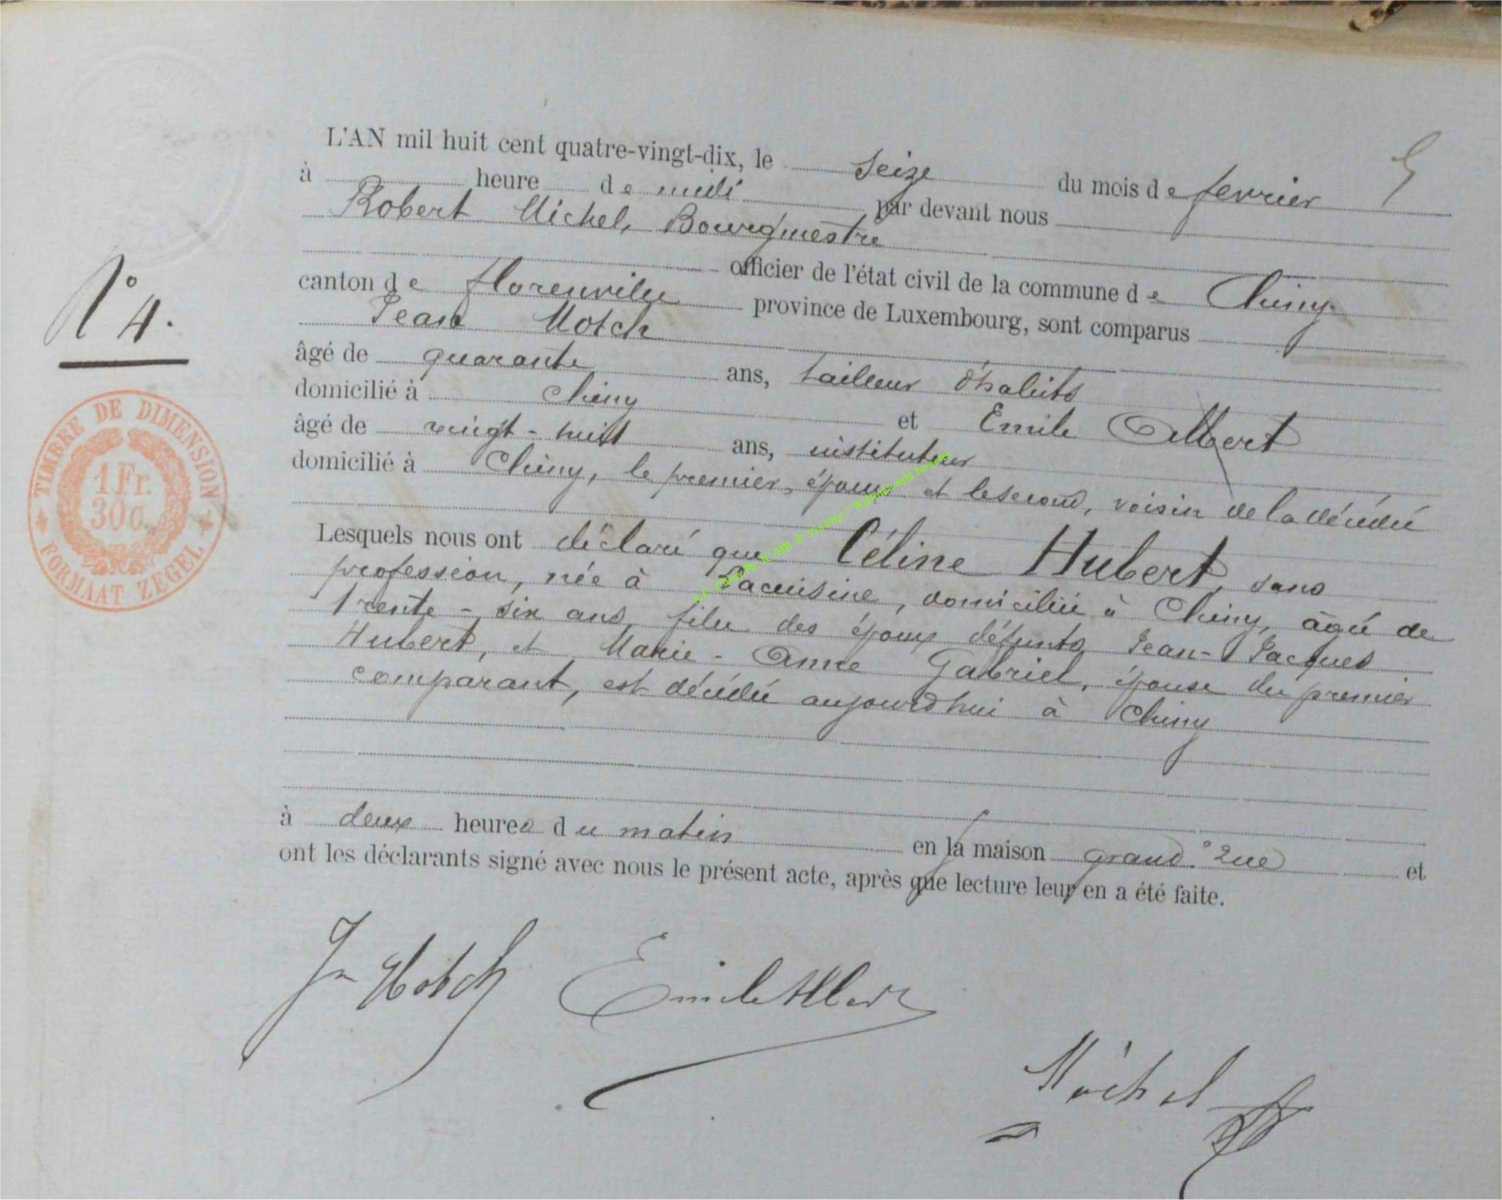 5
L'AN mil huit cent quatre-vingt-dix, le seize du mois de fevrier
à heure de midi par devant nous
Robert Michel, Bourgmestre
officier de l'état civil de la commune de Chiny
canton de florenville province de Luxembourg, sont comparus
Jean Motch
âgé de quarante ans, tailleur d'habits
domicilié à Chiny et Emile Albert
âgé de vingt-huit ans, instituteur
domicilié à Chiny, le premier, époux et le second, voisin de la décédée
Lesquels nous ont déclaré que Céline Hubert, sans
profession, née à Lacuisine, domiciliée à Chiny, âgée de
trente-six ans, fille des époux défunts Jean-Jacques
Hubert, et Marie-Anne Gabriel, épouse du premier
comparant, est décédée aujourd'hui à Chiny
à deux heures du matin en la maison grand'rue et
ont les déclarants signé avec nous le présent acte, après que lecture leur en a été faite.
N° 4.
TIMBRE DE DIMENSION
1 Fr.
30 c.
FORMAAT ZEGEL
Jn Motch Emile Albert
Michel